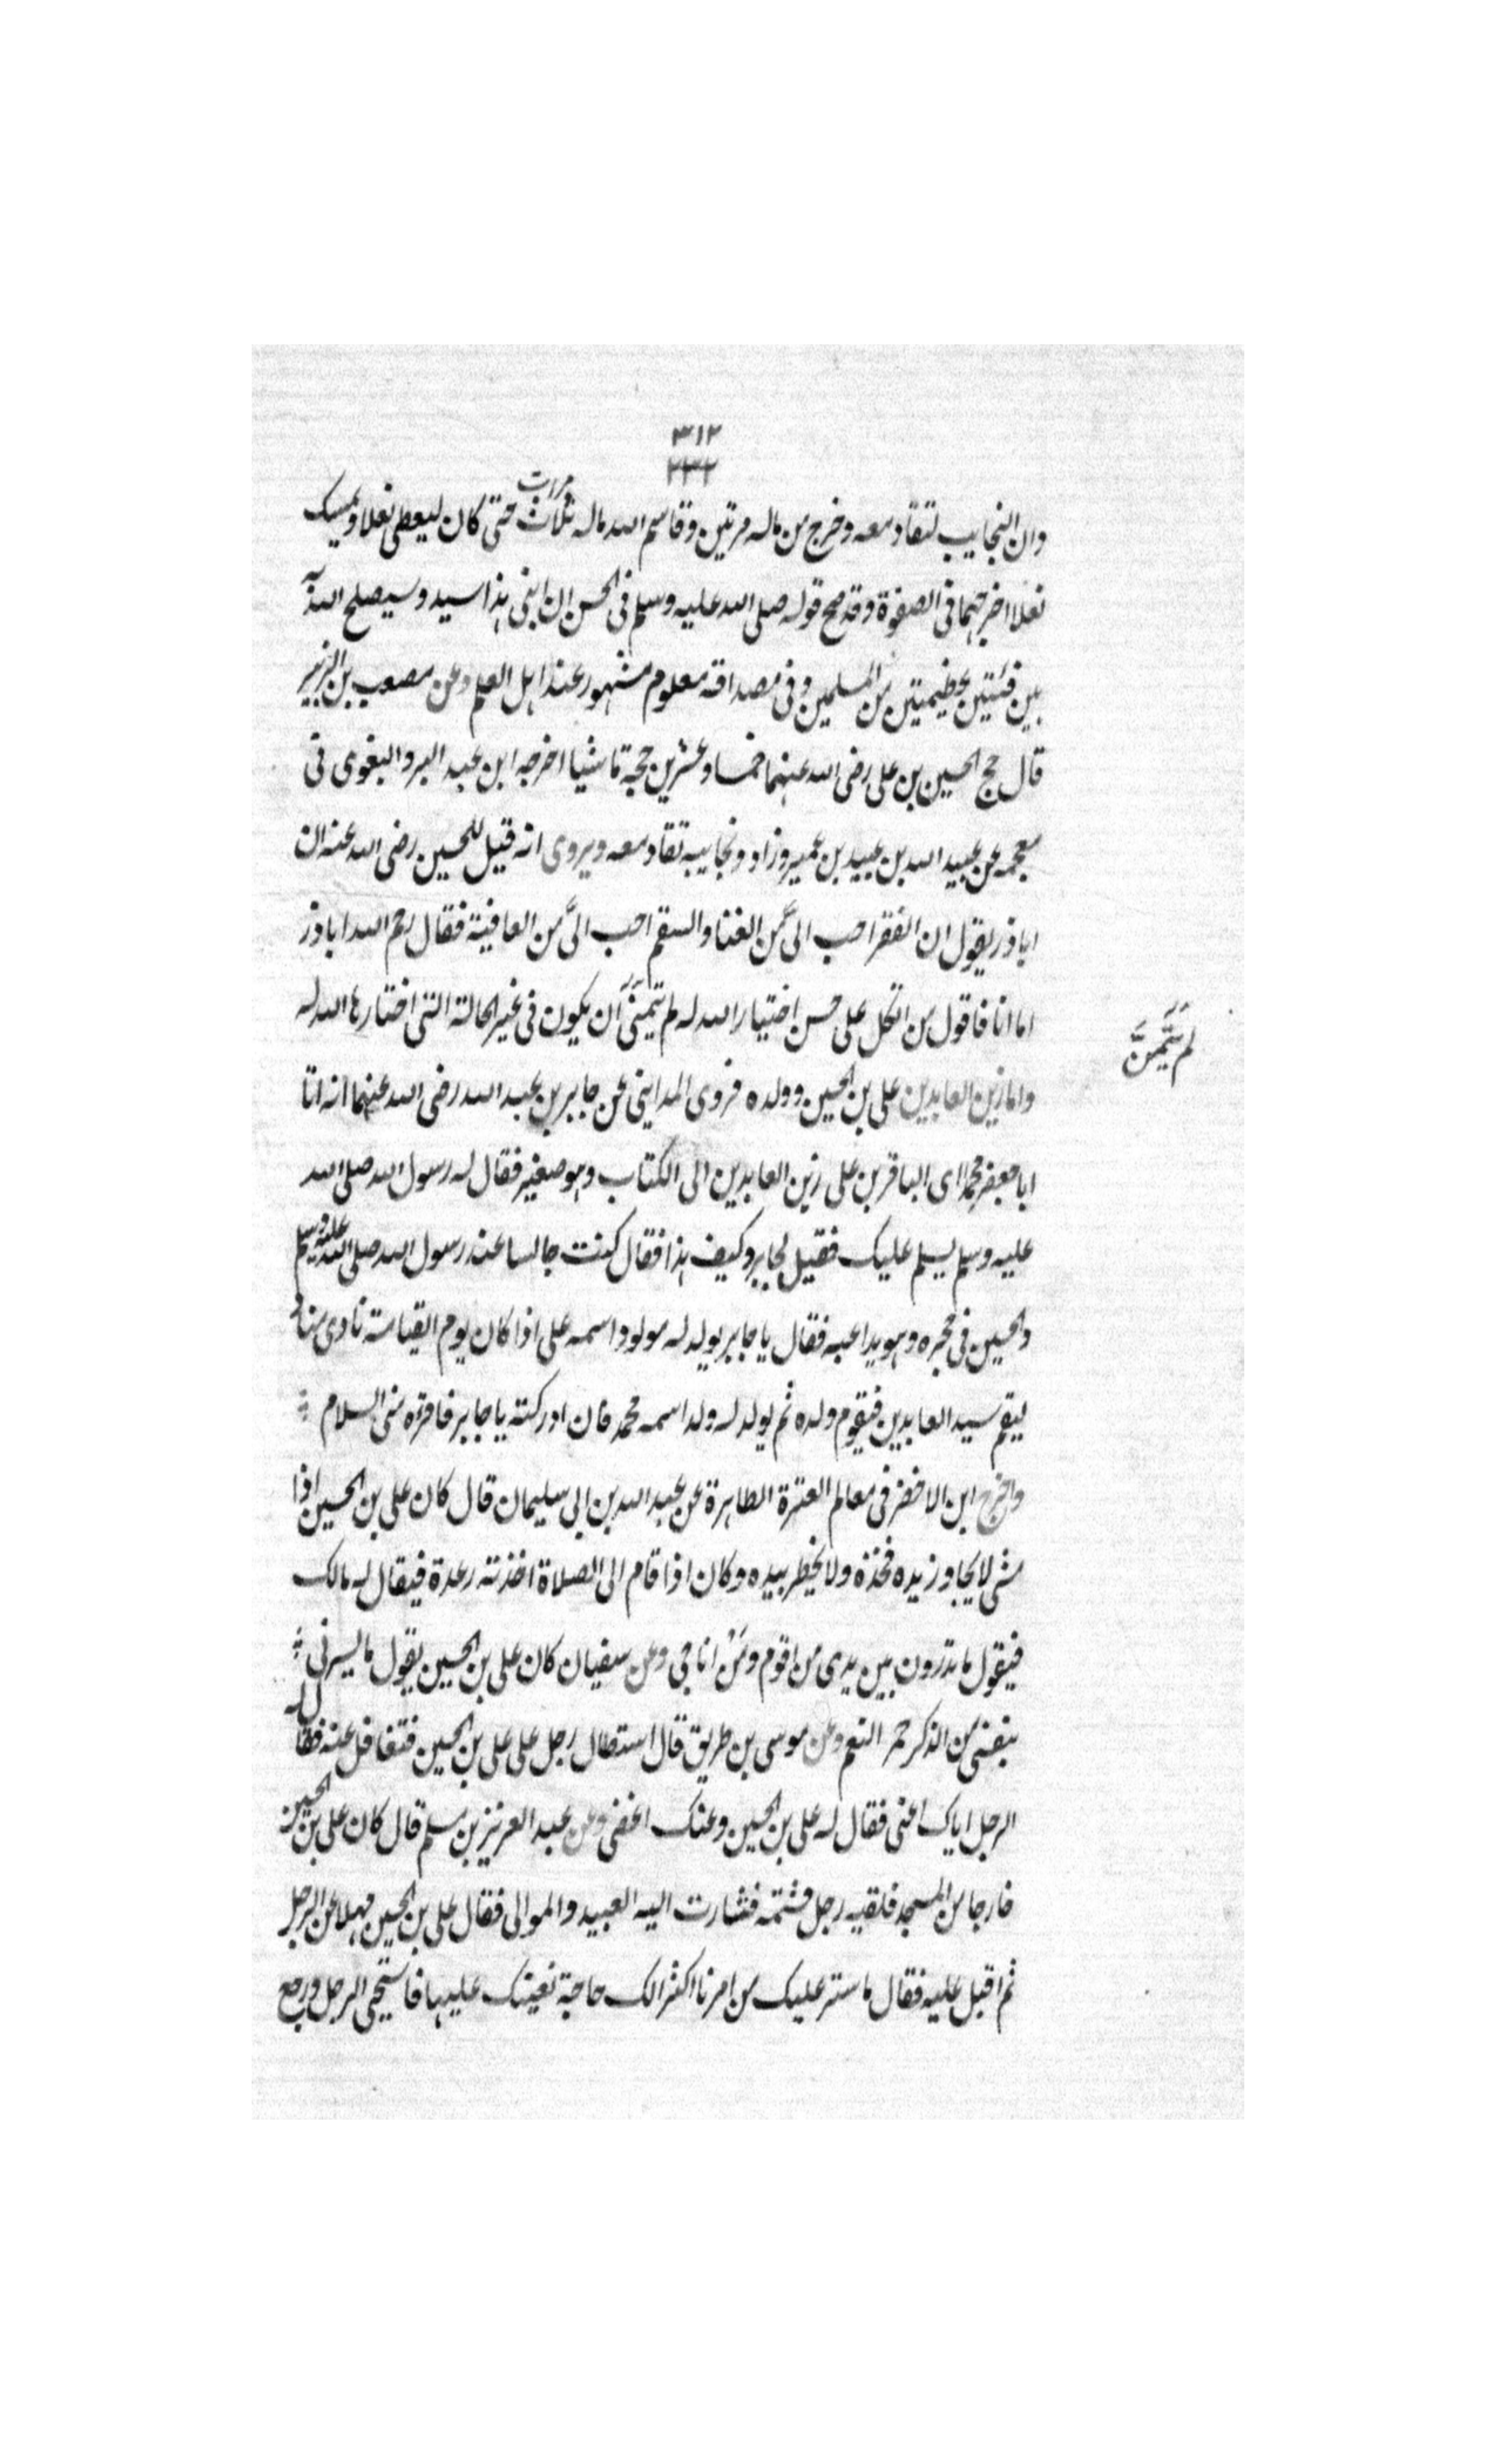 ٣١٢
٢٣٢
وان النجايب لتقاد معه وخرج من ماله مرتين وقاسم الله ماله ثلاث مرات حتى كان ليعطى نعلا ويمسك
نعلا اخرجهما فى الصفوة وقد صح قوله صلى الله عليه وسلم فى الحسن ان ابنى هذا سيد وسيصلح الله به
بين فئتين عظيمتين من المسلمين وفى مصداقه معلوم مشهور عند اهل العلم وعن مصعب بن الزبير
قال حج الحسين بن على رضى الله عنهما خمسا وعشرين حجة ماشيا اخرجه ابن عبد البر والبغوى فى
معجمه عن عبيد الله بن عبيد بن عمير وزاد ونجايبه تقاد معه ويروى انه قيل للحسين رضى الله عنه ان
اباذر يقول ان الفقر احب الىَّ من الغنا والسقم احب الىَّ من العافية فقال رحم الله اباذر
اما انا فاقول من اتكل على حسن اختيار الله له لم يتمنَّ ان يكون فى غير الحالة التى اختارها الله له
لم يَتَمَنَّ
واما زين العابدين على بن الحسين وولده فروى المداينى عن جابر بن عبد الله رضى الله عنهما انه اتا
ابا جعفر محمد اى الباقر بن على زين العابدين الى الكتاب وهو صغير فقال له رسول الله صلى الله
عليه وسلم يسلم عليك فقيل لجابر وكيف هذا فقال كنت جالسا عند رسول الله صلى الله عليه وسلم
والحسين فى حجره وهو يداعبه فقال يا جابر يولد له مولود اسمه على اذا كان يوم القيامة نادى مناد
ليقم سيد العابدين فيقوم ولده ثم يولد له ولد اسمه محمد فان ادركته يا جابر فاقرئه منى السلام
واخرج ابن الاخضر فى معالم العترة الطاهرة عن عبد الله بن ابى سليمان قال كان على بن الحسين اذا
مشى لا يجاوز يده فخذه ولا يخطر بيده وكان اذا قام الى الصلاة اخذته رعدة فيقال له مالك
فيقول ما تدرون بين يدى من اقوم ومَنْ اناجى وعن سفيان كان على بن الحسين يقول ما يسرنى
بنفسى من الذكر حمر النعم وعن موسى بن طريق قال استطال رجل على على بن الحسين فتغافل عنه فقال له
الرجل اياك اعنى فقال له على بن الحسين وعنك اغضى وعن عبد العزيز بن مسلم قال كان على بن الحسين
خارجا من المسجد فلقيه رجل فشتمه فثارت اليه العبيد والموالى فقال على بن الحسين مهلا عن الرجل
ثم اقبل عليه فقال ما ستر عليك من امرنا اكثر الك حاجة نعينك عليها فاستحيى الرجل ورجع